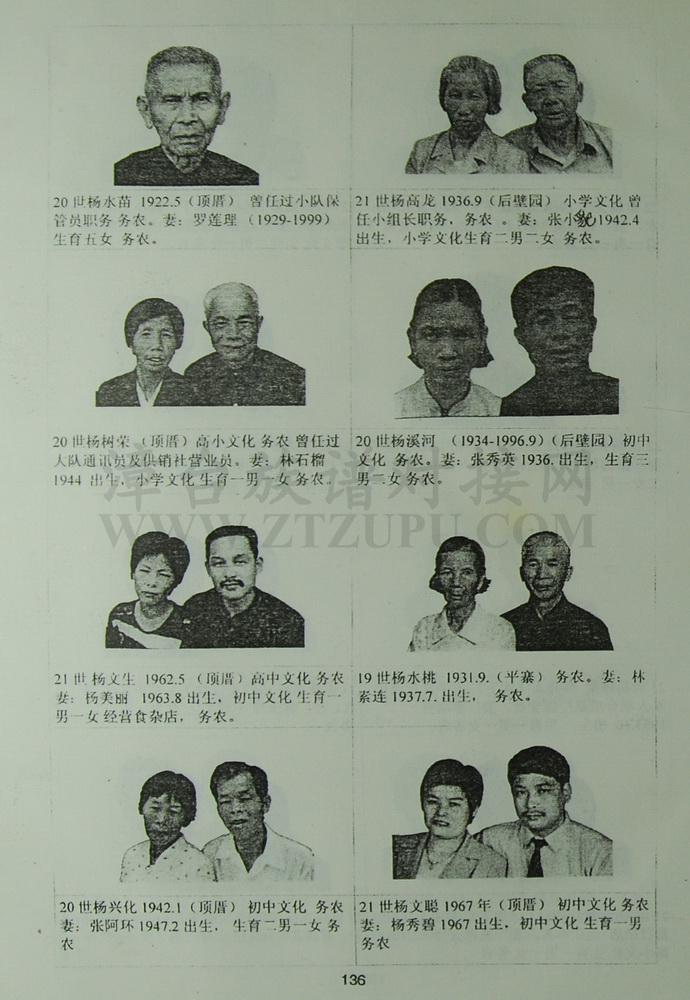 20 世杨水苗 1922.5（顶厝） 曾任过小队保
管员职务 务农。妻：罗莲理 （1929-1999）
生育五女 务农。
21 世杨高龙 1936.9（后壁园） 小学文化 曾
任小组长职务，务农 。妻：张小 1942.4
出生，小学文化生育二男二女 务农。
20 世杨树荣 （顶厝）高小文化 务农 曾任过
大队通讯员及供销社营业员。妻：林石榴
1944 出生，小学文化 生育一男一女 务农。
20 世杨溪河 （1934-1996.9）（后壁园）初中
文化 务农。妻：张秀英 1936. 出生，生育三
男二女 务农。
族谱对接网
WWW.ZTZUPU.COM
21 世 杨文生 1962.5 （顶厝）高中文化 务农
妻：杨美丽 1963.8 出生，初中文化 生育一
男一女 经营食杂店， 务农。
19 世杨水桃 1931.9.（平寨） 务农。妻：林
素连 1937.7. 出生， 务农。
20 世杨兴化 1942.1（顶厝） 初中文化 务农
妻：张阿环 1947.2 出生， 生育二男一女 务
农
21 世杨文聪 1967 年（顶厝） 初中文化 务农
妻：杨秀碧 1967 出生，初中文化 生育一男
务农
136